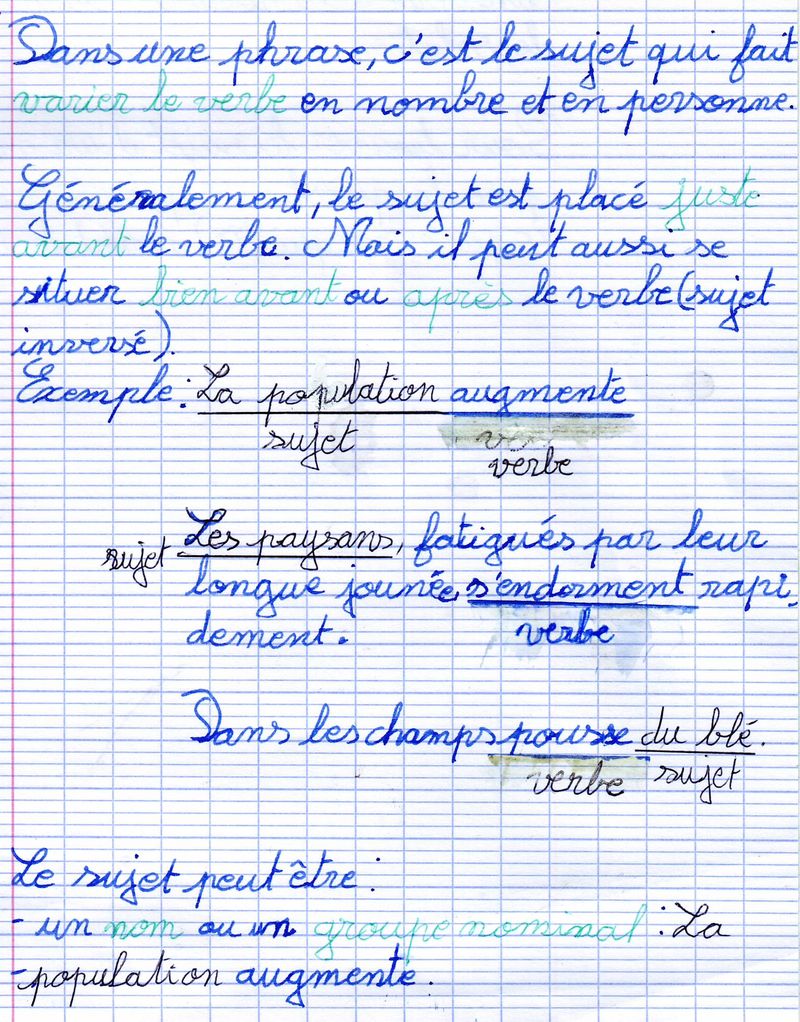 Dans une phrase, c'est le sujet qui fait
varier le verbe en nombre et en personne.
Généralement, le sujet est placé juste
avant le verbe. Mais il peut aussi se
situer bien avant ou après le verbe (sujet
inversé).
Exemple : La population augmente
sujet
verbe
sujet Les paysans, fatigués par leur
longue jounée, s'endorment rapi-
dement. verbe
Dans les champs pousse du blé.
verbe sujet
Le sujet peut être :
- un nom ou un groupe nominal : La
- population augmente.